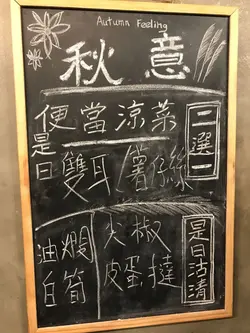 Autumn Feeling
秋意
便當涼菜
二選一
是日
雙耳
薯絲
油燜
白筍
尖椒
皮蛋撻
是日沽清